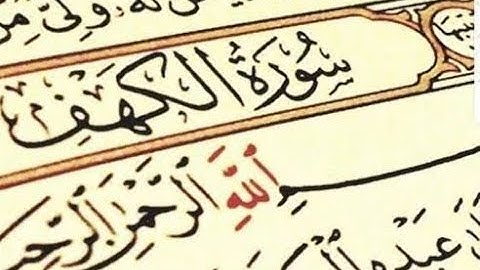 له ولي من
سورة الكهف
بسم الله الرحمن الرحيم